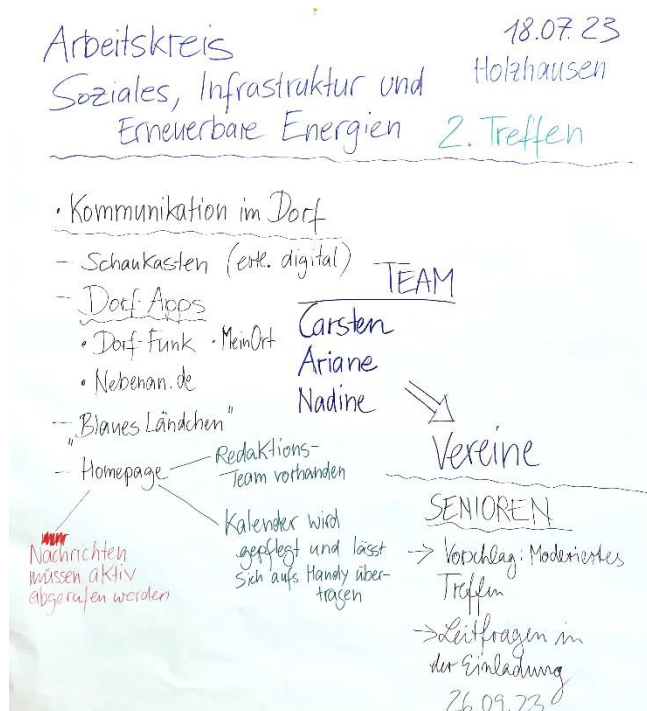 Arbeitskreis
Soziales, Infrastruktur und
Erneuerbare Energien
18.07.23
Holzhausen
2. Treffen
• Kommunikation im Dorf
- Schaukasten (evtl. digital)
- Dorf-Apps
• Dorf-Funk • MeinOrt
• Nebenan.de
- "Blaues Ländchen"
- Homepage
Redaktions-
Team vorhanden
Kalender wird
gepflegt und lässt
sich aufs Handy über-
tragen
Nachrichten
müssen aktiv
abgerufen werden
TEAM
Carsten
Ariane
Nadine
Vereine
SENIOREN
-> Vorschlag: Moderiertes
Treffen
-> Leitfragen in
der Einladung
26.09.23